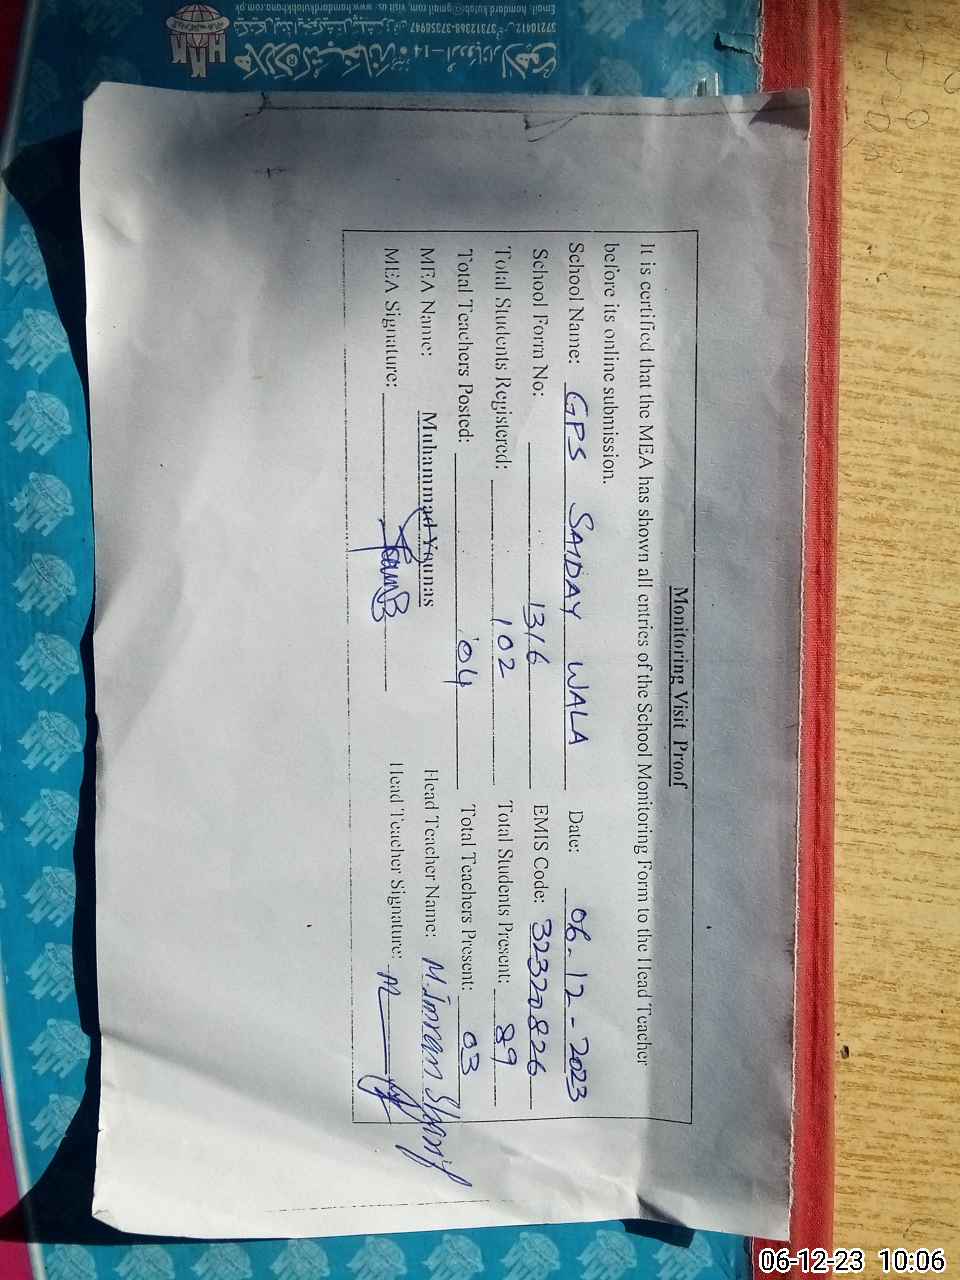 Monitoring Visit Proof
It is certified that the MEA has shown all entries of the School Monitoring Form to the Head Teacher
before its online submission.
School Name: GPS SAIDAY WALA Date: 06-12-2023
School Form No: 1316 EMIS Code: 32320826
Total Students Registered: 102 Total Students Present: 89
Total Teachers Posted: 04 Total Teachers Present: 03
MEA Name: Muhammad Younas Head Teacher Name: M. Imran Sharif
MEA Signature: Head Teacher Signature:
HKK
06-12-23 10:06